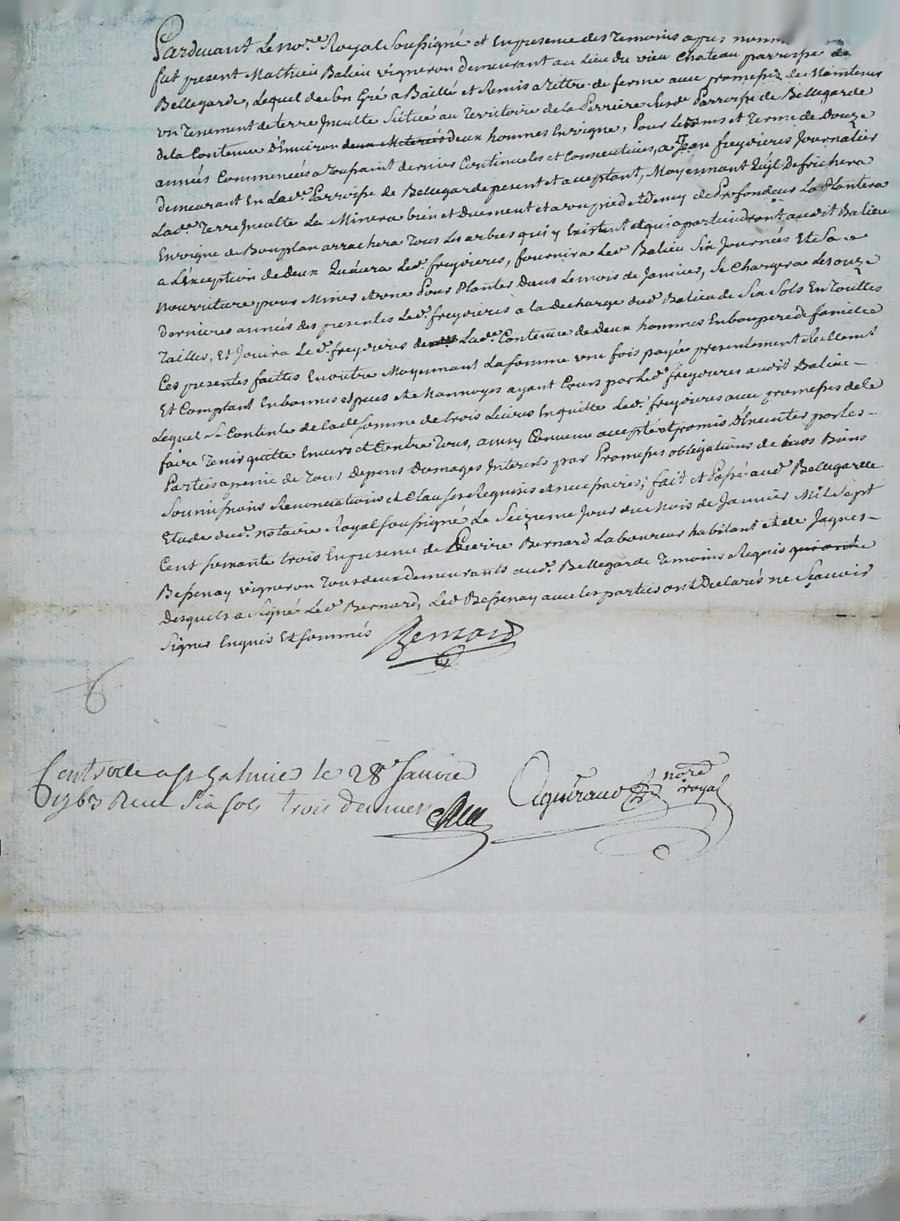 Pardevant Le no.re Royal Soussigné et En presence des Temoins apres nomm
fut present Mathieu Balieu vigneron demeurant au Lieu du vieu Chateau parroisse de
Bellegarde, Lequel de son Gré a Baillé et Remis a tittre de ferme avec promesse de Maintenir
un Tenement de terre Inculte Scittué au Territoire de la Perrière susd.e Parroisse de Bellegarde
de la Contenue D'Environ deux hommes En vigne, Pour le tems et Terme de Douze
années Commencés a Toussaint dernier Continuels et Consecutives, a Jean freydieres Journalier
demeurant En Lad.e Parroisse de Bellegarde present et acceptant, Moyennant Qu'il Defrichera
Lad.e Terre Inculte La Minera bien et Duement et a un pied et demy de Profondeur La Plantera
En vigne de Bon plan arrachera Tous Les arbres qui y Existent et qui apartiendront audit Balieu
a L'Exception de deux Qu'aura Led. freydieres, fournira Led. Balieu Six Journées Et Sa
Nourritture pour Miner Pour Planter Dans Le mois de Janvier, Se Chargera Les onze
dernieres années des presentes Led. freydieres a la decharge dud. Balieu de Six Sols En Touttes
Tailles, Et Jouira Le d. freydieres Lad.e Contenue de deux hommes En bon pere de famille
Ces presentes faittes En outre Moyennant La somme une fois payée presentement Reellement
Et Comptant En bonnes especes de Monnoyes ayant Cours par Led. freydieres audit Balieu
Lequel Se Contente de lad.e Somme de trois Livres En quitte Led. freydieres avec promesse de le
faire Tenir quitte Envers et Contre Tous, ainsy Convenu accepté et promis D'Executer par les
Parties a peine de Tous depens Domages Interets par Promesses obligations de Biens
Soumissions Renonciations et Clauses Requises et necessaires; fait et Passé aud. Bellegarde
Etude du d. notaire Royal soussigné Le Seizieme Jour du Mois de Janvier Mil Sept
Cent soixante trois En presence de Pierre Bernard Laboureur habitant et de Jaques
Bessenay vigneron Tous deux demeurants aud. Bellegarde Temoins Requis
Desquels a Signé Led. Bernard, Led. Bessenay avec les parties ont Declarés ne Sçavoir
Signer Enquis Et Sommés
Bernard
Controllé a St Galmier le 28e Janvier
1763 Reçu Six sols trois deniers
Aguiraud no.re
royal